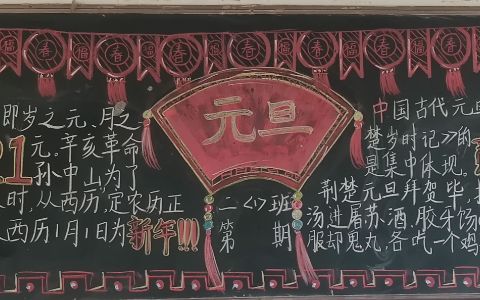 福 春 福 春 福 春 福 春 福 春 福 春
元旦
即岁之元、月之
元。辛亥革命
21
孙中山,为了
时,从西历,定农历正
西历1月1日为新年!!!
二<1>班
第 期
中国古代元旦
楚岁时记》的
是集中体现。
荆楚元旦拜贺毕,
汤进屠苏、酒、胶牙饧
服却鬼丸,各吃一个鸡